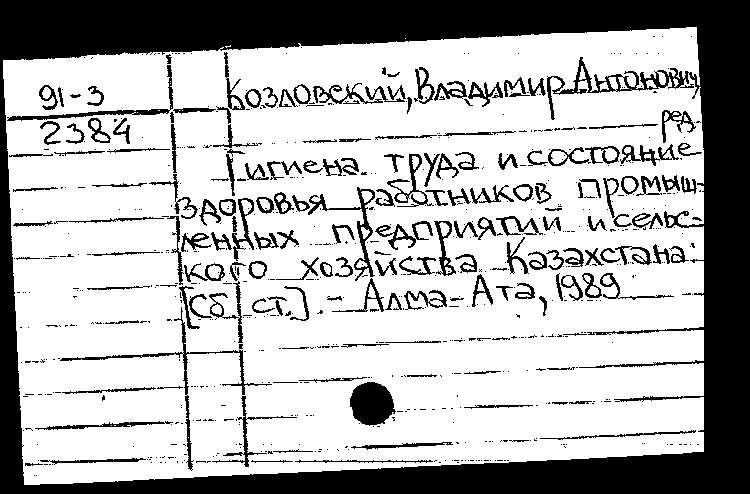 91-3
2384
Козловский, Владимир Антонович,
ред.
Гигиена труда и состояние
здоровья работников промыш-
ленных предприятий и сельс-
кого хозяйства Казахстана:
[Сб. ст.]. - Алма-Ата, 1989